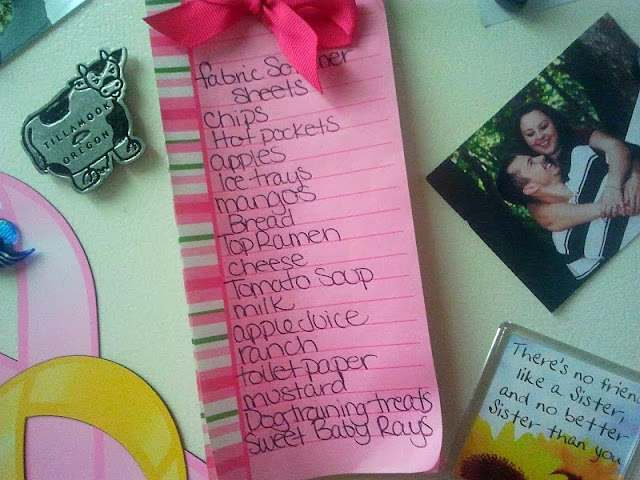 TILLAMOOK
OREGON
fabric Softner
sheets
chips
Hot pockets
apples
Ice trays
mangos
Bread
Top Ramen
cheese
Tomato Soup
milk
apple Juice
ranch
toilet paper
mustard
Dog training treats
Sweet Baby Rays
There's no friend
like a Sister,
and no better
Sister than you